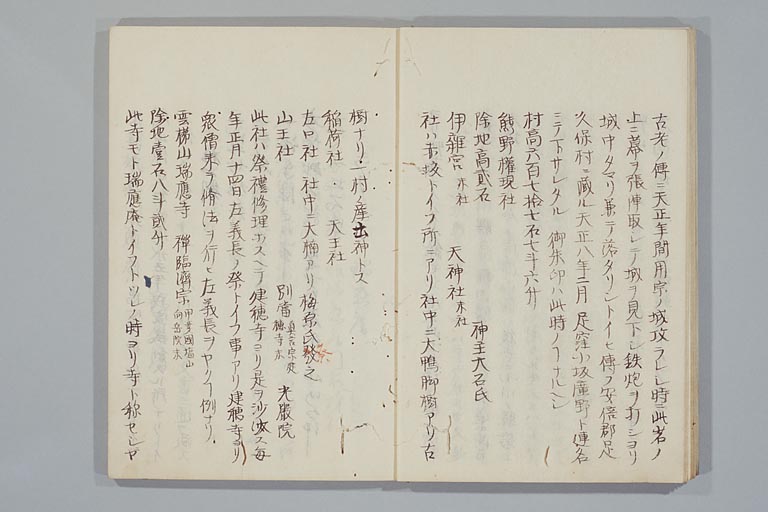 古老ノ傳ニ天正年間用宗ノ城攻ラレシ時ニ此岩ノ
上ニ幕ヲ張陣取シテ城ヲ見下シ鉄炮ヲ打シヨリ
城中タマリ兼テ落タリントイヒ傳フ安倍郡足
久保村ニ蔵ル天正八年二月足窪小坂廣野ト連名
ニテ下サレタル 御朱印ハ此時ノ
村高六百七拾七石七斗六升
熊野権現社
除地高貮石 神主大石氏
伊雜宮 末社 天神社 末社
社ハ赤坂トイフ所ニアリ社中ニ大鴨脚樹アリ古
樹ナリ一村ノ産土神トス
稲荷社 天王社
左口社 社中ニ大楠アリ
山王社 別當 真言宗 建穂寺末 光嚴院
此社ハ祭禮修理ホスヘテ建穂寺ヨリ是ヲ沙汰ス毎
年正月十四日左義長ノ祭トイフ事アリ建穂寺ヨリ
衆僧来ヲ修法ヲ行ヒ左義長ヲヤリフ例ナリ
雲梯山瑞應寺 禅臨濟宗 甲斐國塩山 向岳院末
除地壹石八斗貮升
此寺モト瑞應庵トイフ 時ヨリ寺ト称セシヤ